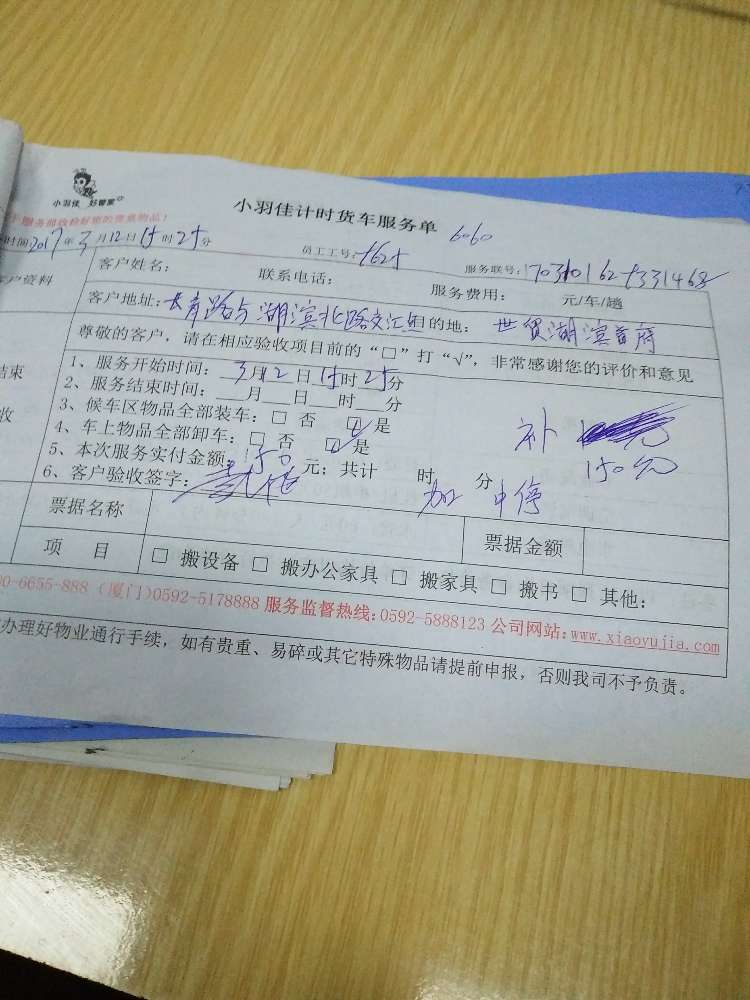 小羽佳 好管家
小羽佳计时货车服务单 6060
服务前请收拾好您的贵重物品!
时间2017年3月12日15时25分 员工工号: 1625 服务联号:
客户资料 客户姓名: 联系电话: 服务费用: 元/车/趟
客户地址: 路与湖滨北路交汇 目的地: 世贸湖滨首府
尊敬的客户,请在相应验收项目前的“□”打“√”,非常感谢您的评价和意见
1、服务开始时间: 3月12日15时25分
2、服务结束时间:___月___日___时___分
3、候车区物品全部装车:□ 否 ☑ 是
4、车上物品全部卸车:□ 否 ☑ 是
补 元
5、本次服务实付金额: 150元;共计 时 分 150元
6、客户验收签字: 加 中停
票据名称 票据金额
项 目 □ 搬设备 □ 搬办公家具 □ 搬家具 □ 搬书 □ 其他:
00-6655-888(厦门)0592-5178888 服务监督热线:0592-5888123 公司网站:www.xiaoyujia.com
办理好物业通行手续,如有贵重、易碎或其它特殊物品请提前申报,否则我司不予负责。